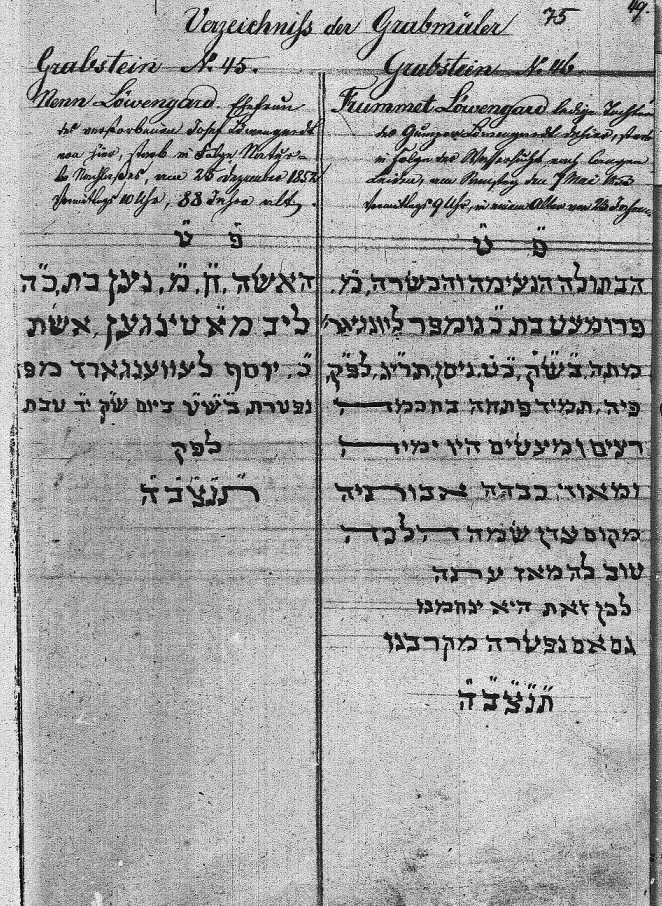 Verzeichniß der Grabmäler 75
49.
Grabstein N. 45.
Nenn Löwengard. Ehefrau
des verstorbenen Josef Löwengardt
von hier, starb in Folge Natur-
Nachlaßes, am 26 Dezember 1852
Vormittags 10 Uhr, 88 Jahre alt.
פ" ט"
האשה, ח", מ", נען בת, כ"ה
ליב מאטינגען, אשת
כ", יוסף לעווענגארד מפ"
נפטרת, ב"שט ביום ש"ק י"ד טבת
לפק
תנצבה
Grabstein N. 46.
Frummet Löwengard ledige Tochter
des Gumper Löwengardt dahier, starb
in Folge der Wassersucht nach langem
Leiden, am Samstag den 7 Mai 1853
Vormittags 9 Uhr, in einem Alter von 23 Jahren.
פ" ט"
הבתולה הנעימה והכשרה, מ",
פרומעט בת, כ" גומפר
מתה, ב"ש"ק, ניסן, תרי"ג, לפ"ק,
פיה, תמיד פתחה בחכמה
רצים ומעשים היו ימיה
ומאוד, כבדה אבותיה
מקום עדן שמה ה, לבדה
טוב לה מאז
לכן זאת היא ינחמנו
גם אם נפטרה מקרבנו
תנצבה